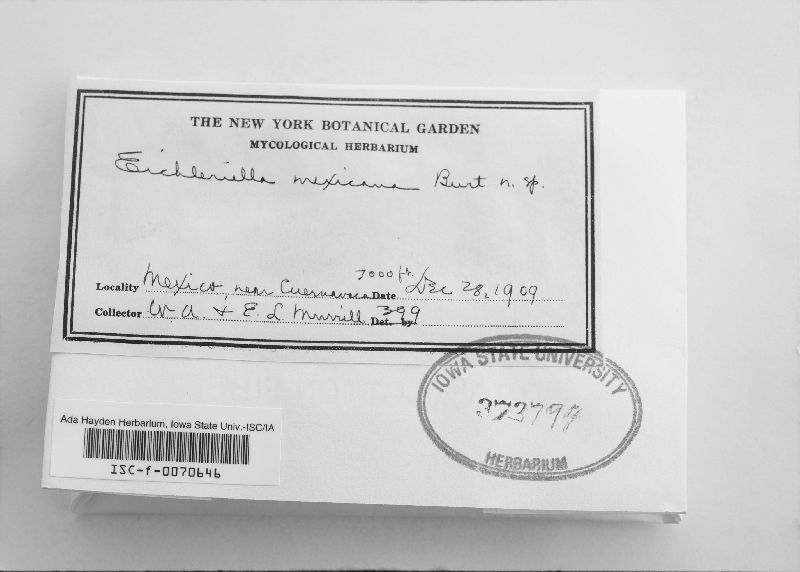 THE NEW YORK BOTANICAL GARDEN
MYCOLOGICAL HERBARIUM
Eichleriella mexicana Burt n. sp.
7000 ft.
Locality Mexico, near Cuernavaca Date Dec 28, 1909
Collector W. A. & E. L. Murrill Det. by 399
IOWA STATE UNIVERSITY
HERBARIUM
Ada Hayden Herbarium, Iowa State Univ.-ISC/IA
ISC-f-0070646